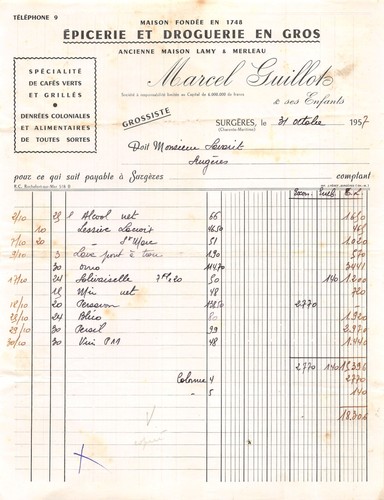 TÉLÉPHONE 9
MAISON FONDÉE EN 1748
ÉPICERIE ET DROGUERIE EN GROS
ANCIENNE MAISON LAMY & MERLEAU
SPÉCIALITÉ
DE CAFÉS VERTS
ET GRILLÉS
DENRÉES COLONIALES
ET ALIMENTAIRES
DE TOUTES SORTES
Marcel Guillot
Société à responsabilité limitée au Capital de 6.000.000 de francs
& ses Enfants
GROSSISTE
SURGÈRES, le 31 octobre 1957
(Charente-Maritime)
Doit Monsieur
Surgères
pour ce qui suit payable à Surgères comptant
R.C. Rochefort-sur-Mer
2/10 25 l Alcool net 66 1650
10 Lessive Lacroix 4650 465
7/10 20 51 1020
3/10 3 Lave pont à 190 570
30 Omo 11470 3441
17/10 24 50 140 1200
15 net 48 720
18/10 20 Persavon 2770
23/10 24 Bléco 80 1920
29/10 30 Persil 99 2970
30/10 30 Vin 48 1440
2770 140 15396
Colonne 4 2770
5 140
18306